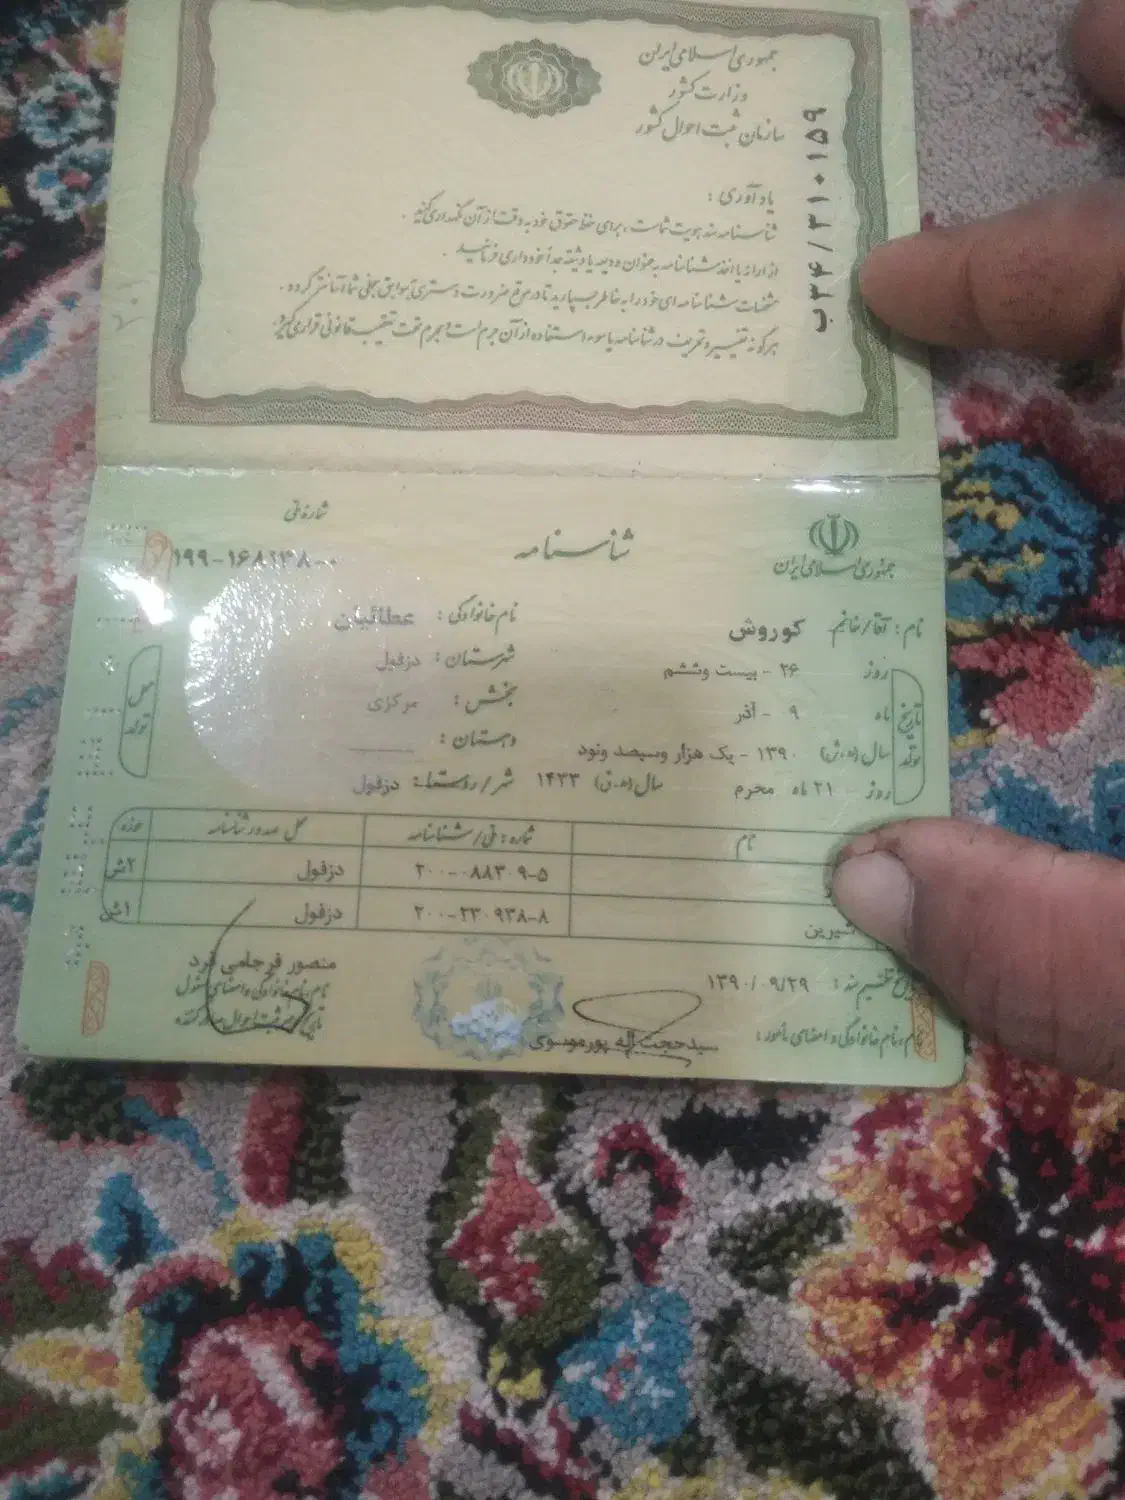 جمهوری اسلامی ایران
وزارت کشور
سازمان ثبت احوال کشور
ب۲۴/۲۱۰۱۵۹
یادآوری :
شناسنامه سند هویت شماست ، برای حفظ حقوق خود به دقت از آن نگهداری کنید .
از ارائه یا اخذ شناسنامه به عنوان ودیعه یا وثیقه جداً خودداری فرمائید .
مشخصات شناسنامه ای خود را به خاطر بسپارید تا در موقع ضرورت دسترسی به سوابق سجلی شما آسانتر گردد .
هرگونه تغییر و تحریف در شناسنامه یا سوء استفاده از آن جرم است و مجرم تحت تعقیب قانونی قرار می گیرد
جمهوری اسلامی ایران
شناسنامه
شماره ملی
۱۹۹-۱۶۸۱۳۸-۰
نام : آقا/خانم کوروش
نام خانوادگی : عطائیان
تاریخ تولد
روز ۲۶ - بیست وششم
ماه ۹ - آذر
سال (ه.ش) ۱۳۹۰ - یک هزار وسیصد ونود
روز ۲۱ ماه محرم سال (ه.ق) ۱۴۳۳
محل تولد
شهرستان : دزفول
بخش : مرکزی
دهستان :
شهر/روستا : دزفول
نام شماره : ملی/شناسنامه محل صدور شناسنامه حوزه
۲۰۰-۰۸۸۳۰۹-۵ دزفول ۲ش
شیرین ۲۰۰-۲۳۰۹۳۸-۸ دزفول ۱ش
تاریخ تنظیم سند : ۱۳۹۰/۰۹/۲۹
نام ، نام خانوادگی و امضای مأمور : سیدحجت اله پورموسوی
منصور فرجامی فرد
نام ، نام خانوادگی و امضای مسئول